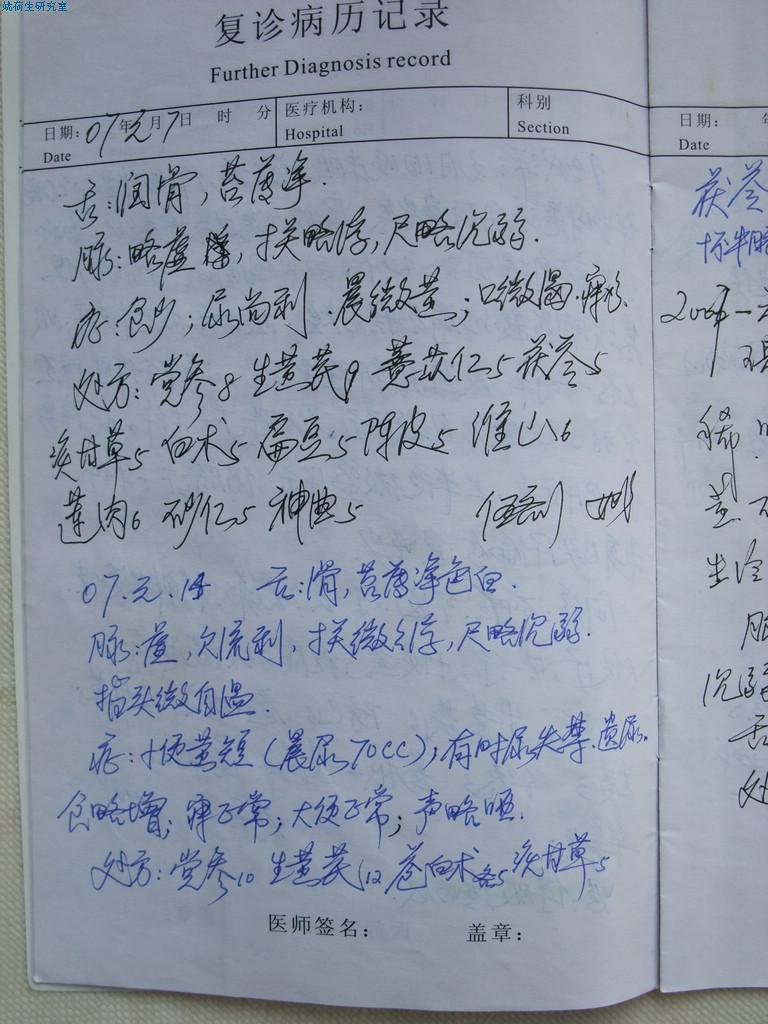 姚荷生研究室
复诊病历记录
Further Diagnosis record
日期: 07年元月7日 时 分 医疗机构: 科别
Date Hospital Section
舌:润滑,苔薄净.
脉:略虚,寸关略浮,尺略沉弱.
症:食少;尿尚利.晨微黄;口微
处方:党参8 生黄芪9 薏苡仁5 茯苓5
炙甘草5 白术5 扁豆5 陈皮5 淮山6
莲肉6 砂仁5 神曲5
07.元.14 舌:滑,苔薄净色白.
脉:虚,欠流利,寸关微浮,尺略沉弱.
指头微自温.
症:小便黄短(晨尿70CC),有时尿失禁.遗尿.
食略增;寐正常;大便正常;声略哑.
处方:党参10 生黄芪12 苍白术各5 炙甘草5
医师签名: 盖章:
日期: 年
Date
茯苓
稀
生冷
沉弱
舌
处